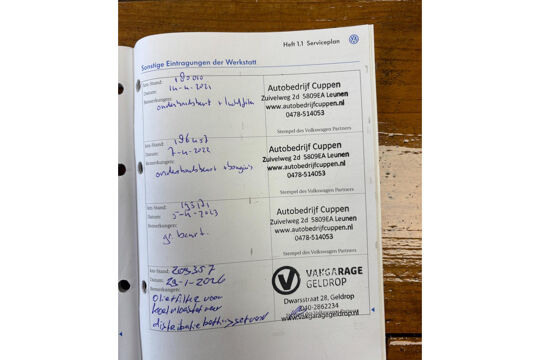 Heft 1.1 Serviceplan
Sonstige Eintragungen der Werkstatt
km-Stand:
Datum: 14-4-2021
Bemerkungen:
onderhoudsbeurt + luchtfilter
Autobedrijf Cuppen
Zuivelweg 2d 5809EA Leunen
www.autobedrijfcuppen.nl
0478-514053
Stempel des Volkswagen Partners
km-Stand: 186457
Datum: 7-4-2022
Bemerkungen:
onderhoudsbeurt + bougies
Autobedrijf Cuppen
Zuivelweg 2d 5809EA Leunen
www.autobedrijfcuppen.nl
0478-514053
Stempel des Volkswagen Partners
km-Stand:
Datum: 5-4-2023
Bemerkungen:
gr beurt.
Autobedrijf Cuppen
Zuivelweg 2d 5809EA Leunen
www.autobedrijfcuppen.nl
0478-514053
Stempel des Volkswagen Partners
km-Stand: 203357
Datum: 29-1-2026
Bemerkungen:
olie+filter voor
koelvloeistof
distributieketting
VAKGARAGE
GELDROP
Dwarsstraat 28, Geldrop
040-2862234
www.vakgaragegeldrop.nl